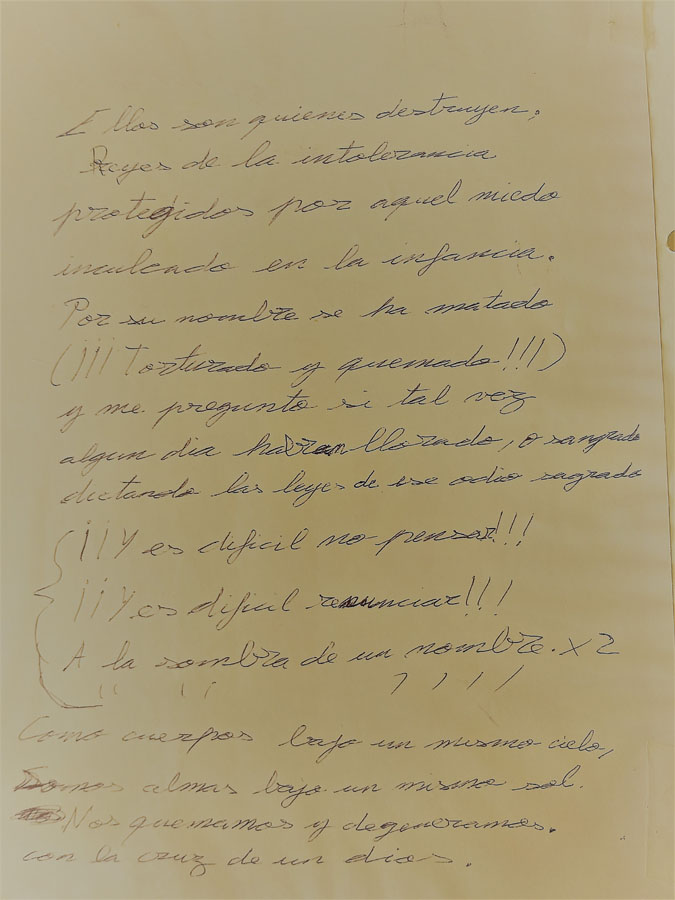 Ellos son quienes destruyen,
Reyes de la intolerancia
protegidos por aquel miedo
inculcado en la infancia.
Por su nombre se ha matado
(¡¡¡Torturado y quemado!!!)
y me pregunto si tal vez
algun dia habran llorado, o sangrado
dictando las leyes de ese odio sagrado
¡¡¡Y es dificil no pensar!!!
¡¡¡Y es dificil renunciar!!!
A la sombra de un nombre. x2
Como cuerpos bajo un mismo cielo,
Somos almas bajo un mismo sol.
Nos quemamos y degeneramos.
con la cruz de un dios.